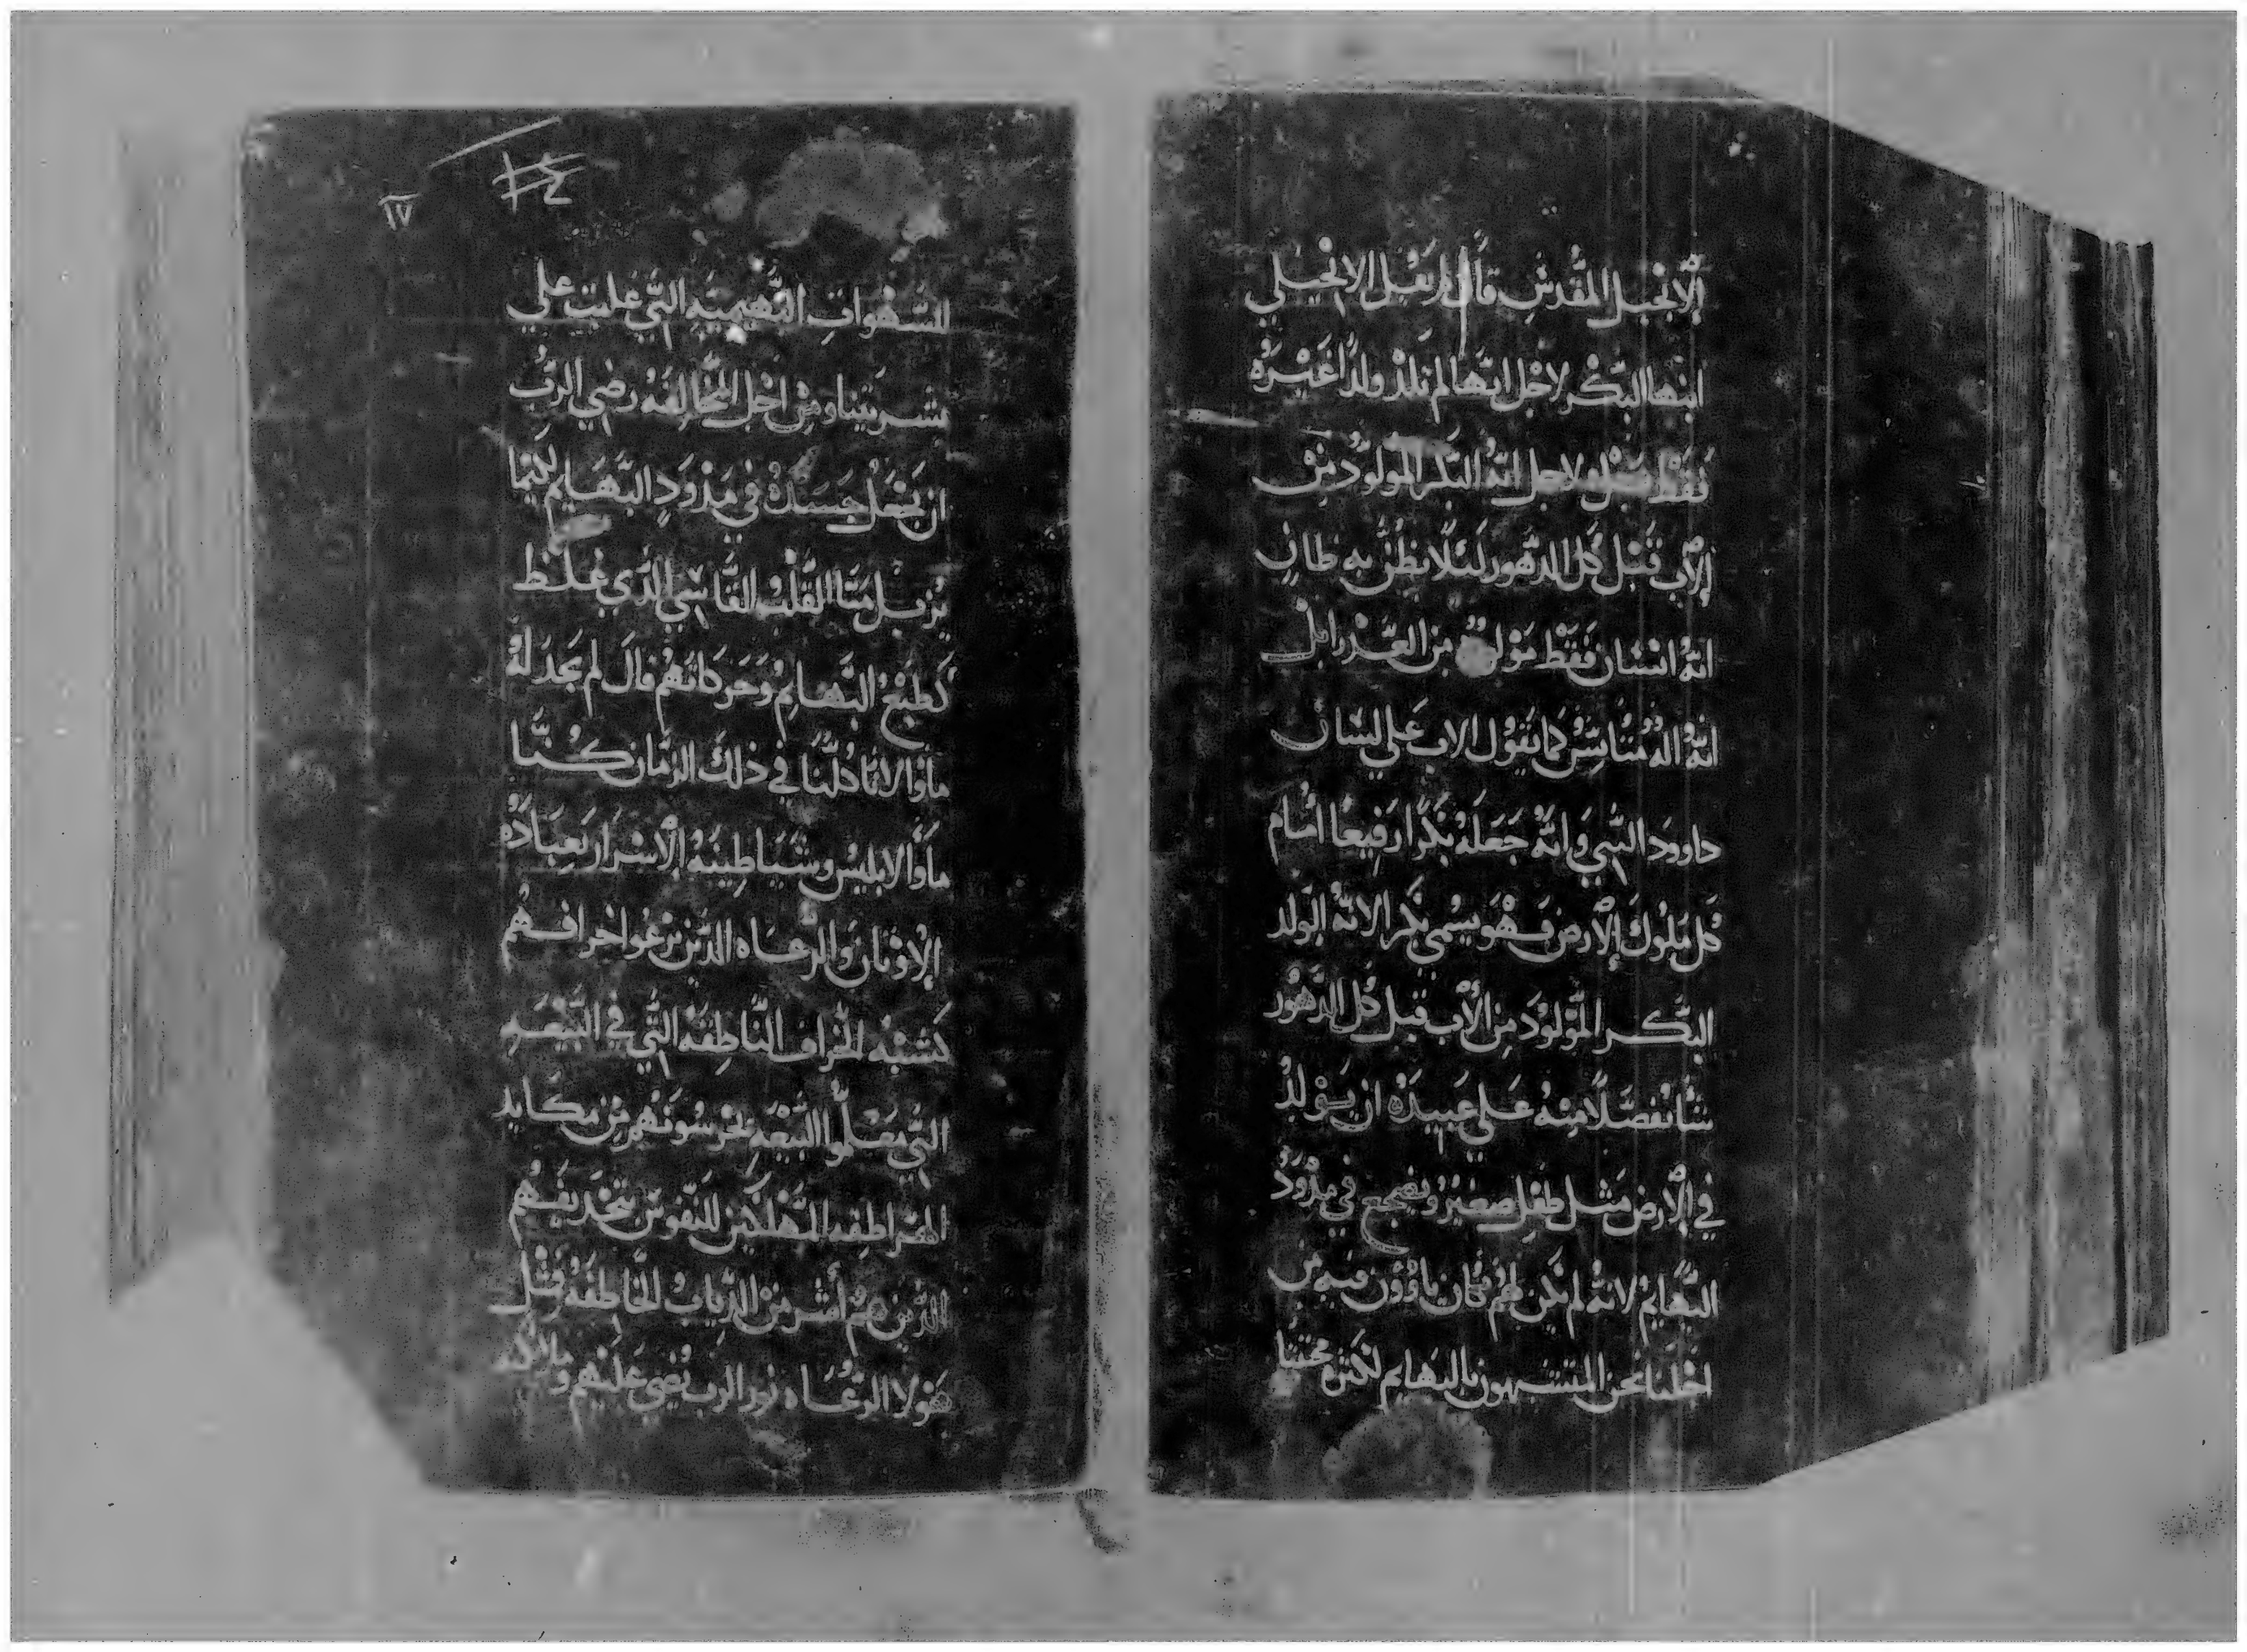 الانجيل المقدس قال لم يقل الانجيلي
ابنها البكر لاجل انها لم تلد ولدا غيره
فقط بل ولاجل انه البكر المولود من
الاب قبل كل الدهور لئلا يظن به ظان
انه انسان فقط مولود من العذرا بل
انه اله متانس كما يقول الاب علي لسان
داوود النبي وانه جعله بكرا رفيعا امام
كل ملوك الارض فهو يسمي بكرا لانه الولد
البكر المولود من الاب قبل كل الدهور
شا تفضلا منه علي عبيده ان يولد
في الارض مثل طفل صغير ويضجع في مذود
البهايم لانه لم يكن لهم مكان ياوون فيه من
اجلنا نحن المتشبهون بالبهايم لكثرة محبتنا
١٧
الشهوات البهيميه التي غلبت علي
بشريتنا ومن اجل المخالفه رضي الرب
ان يجعل جسده في مذود البهايم لكيما
يزيل منا القلب القاسي الذي غلظ
كطبع البهايم وحركاتهم قال لم يجد له
ماوا لاننا كلنا في ذلك الزمان كنا
ماوا لابليس وشياطينه الاشرار بعباده
الاوثان والرعاه الذين يرعوا خرافهم
كشبه الخراف الناطقه التي في البيعه
التي معلموا البيعه يحرسونهم من مكايد
الهراطقه المهلكين للنفوس بتجديفهم
الذين هم أشر من الدياب الخاطفه ومثل
هولا الرعاه نور الرب يضي عليهم وملايكه